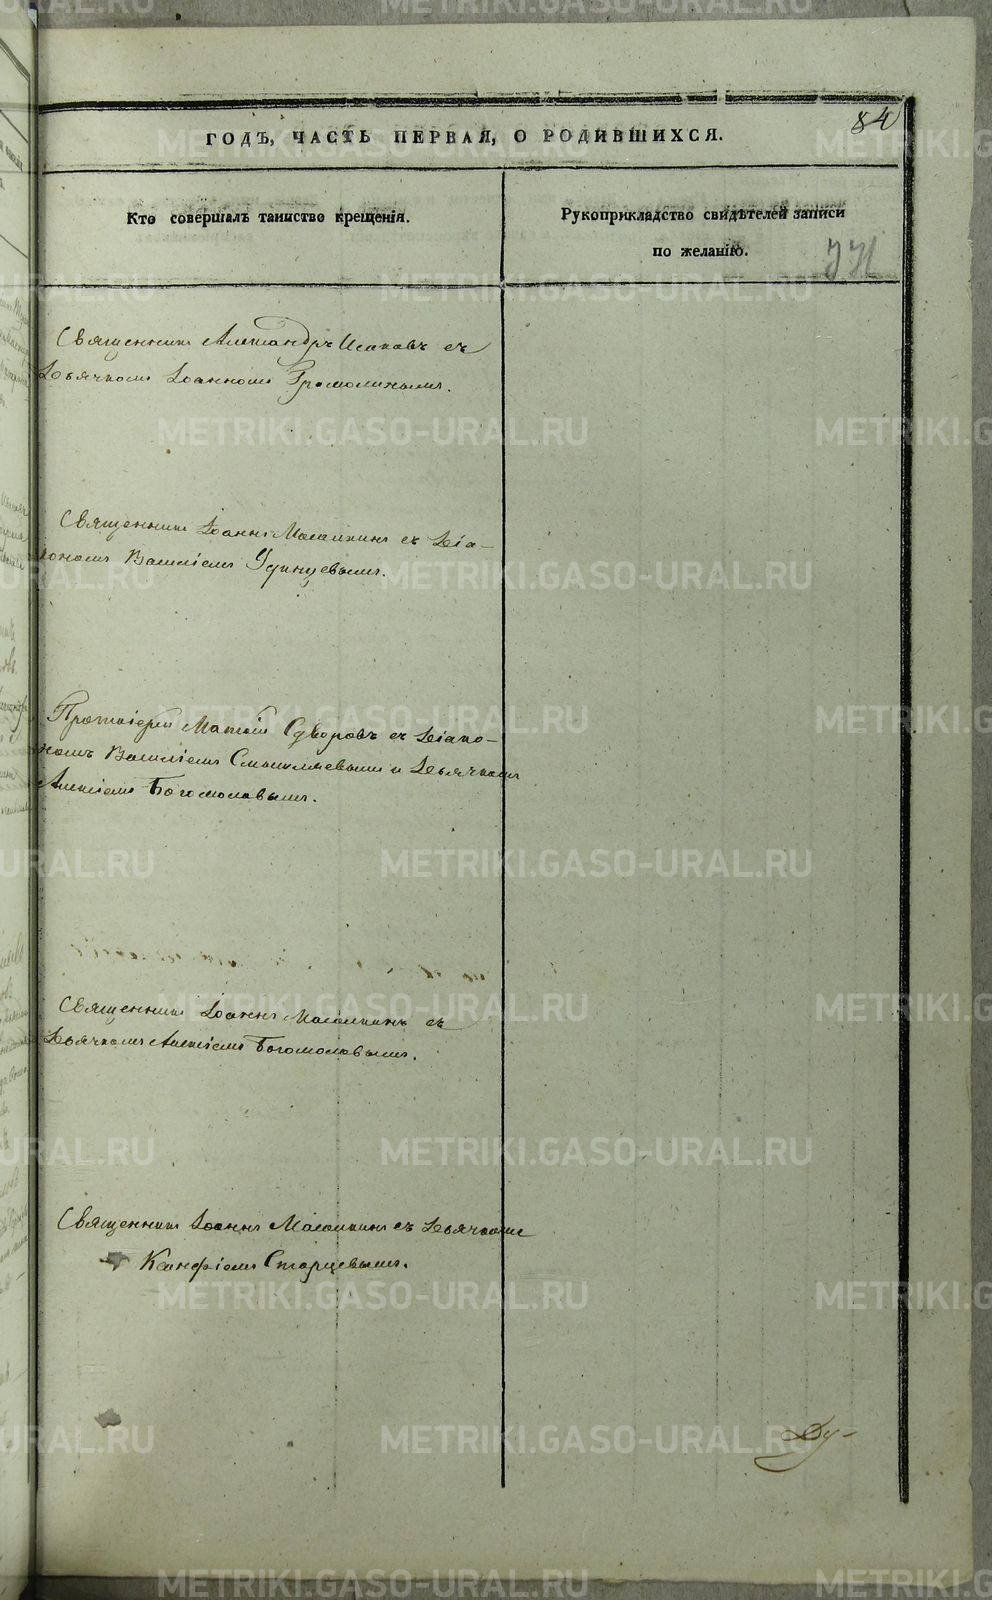 84
ГОДЪ, ЧАСТЬ ПЕРВАЯ, О РОДИВШИХСЯ.
Кто совершалъ таинство крещенія.
Рукоприкладство свидѣтелей записи
по желанію.
Священникъ Александръ Исаковъ съ
Дьячкомъ Іоанномъ
Священникъ Іоаннъ съ Діа-
кономъ Василіемъ Удинцевымъ.
Протоіерей Матѳій съ Діако-
номъ Василіемъ и Дьячкомъ
Алексіемъ Богомоловымъ.
Священникъ Іоаннъ съ
Дьячкомъ Алексіемъ Богомоловымъ.
Священникъ Іоаннъ съ Дьячкомъ
Старцевымъ.
Ду-
METRIKI.GASO-URAL.RU